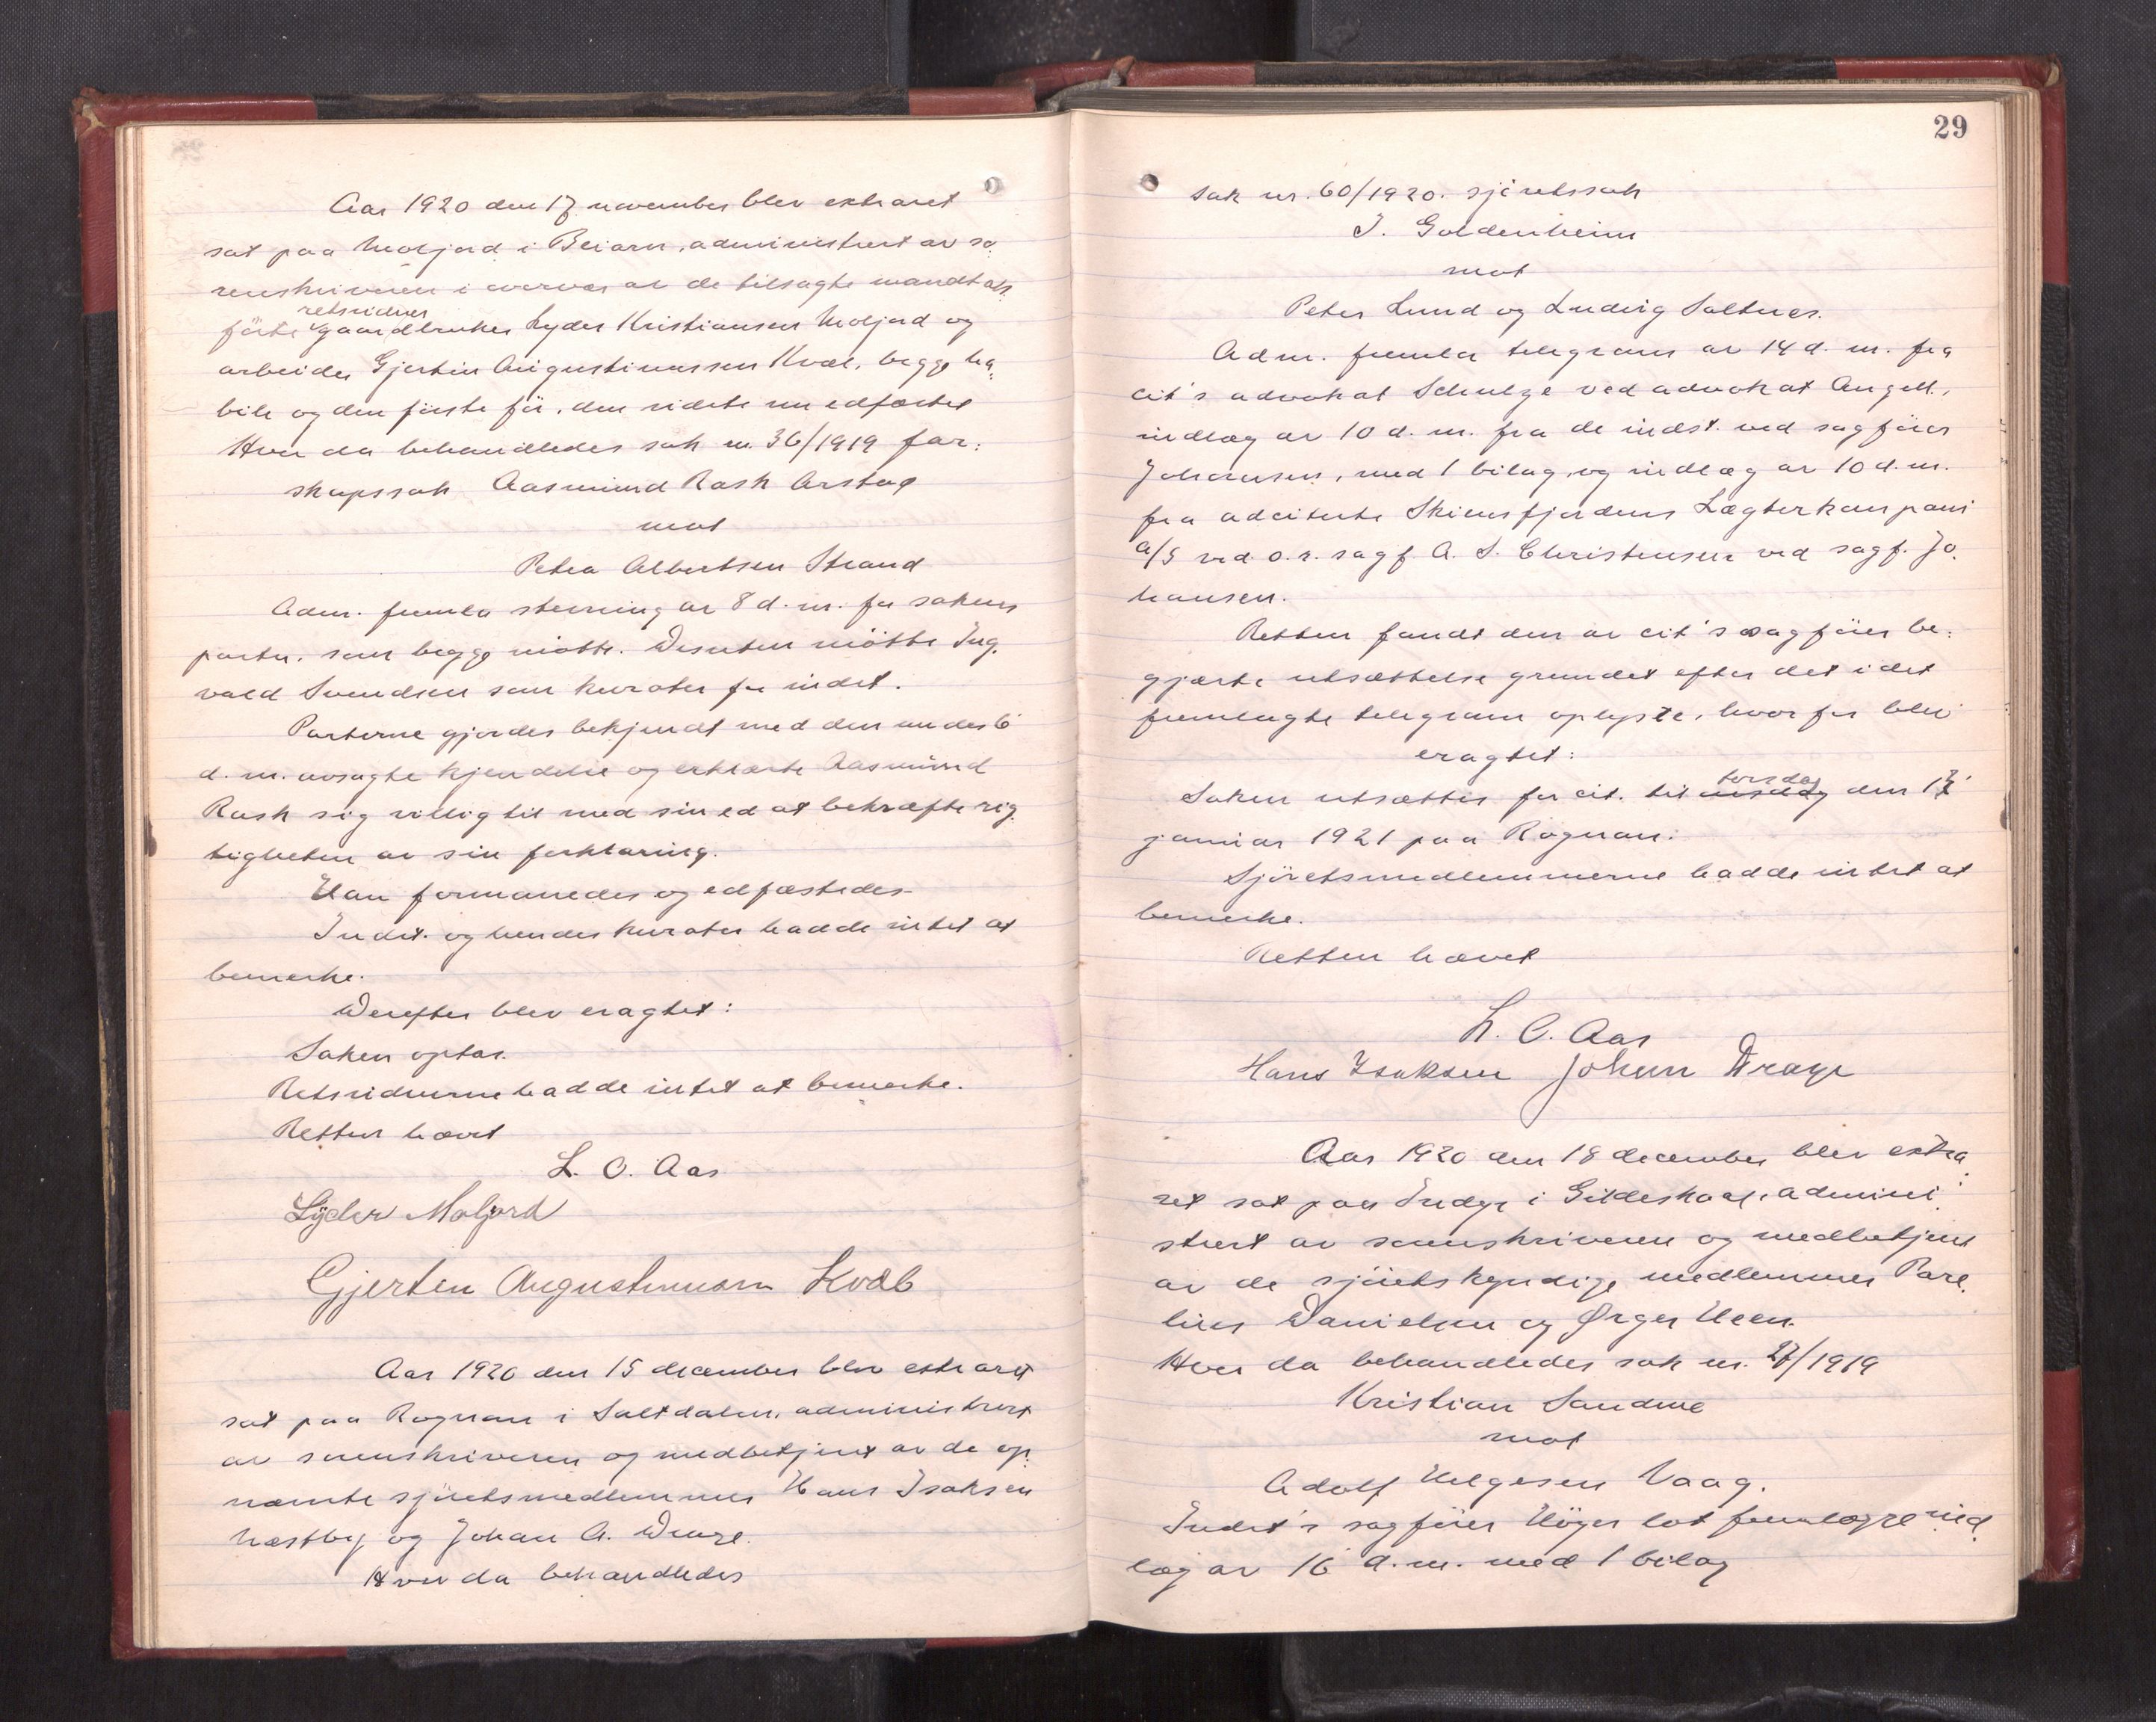 Aar 1920 den 17 november blev extraret
sat paa Moljord i Beiarn, administrert av so-
renskriveren i overvær av de tilsagte mandtals-
retsvidner
førte gaardbruker Lyder Kristiansen Moljord og
arbeider Gjertin Augustinussen Kvæl, begge ha-
bile og den første før, den sidste nu edfæstet
Hvor da behandledes sak nr. 36/1919 far-
skapssak Aasmund Rask Arstad
mot
Petra Albertsen Strand
Adm. fremla stevning av 8 d.m. for sakens
parter, som begge møtte. Desuten møtte Ing-
vald Svendsen som kurator for indst.
Parterne gjordes bekjendt med den under 6
d.m. avsagte kjendelse og erklærte Aasmund
Rask sig villig til med sin ed at bekræfte rig-
tigheten av sin forklaring.
Han formanedes og edfæstedes.
Indst. og hendes kurator hadde intet at
bemerke.
Derefter blev eragtet:
Saken optas.
Retsvidnerne hadde intet at bemerke.
Retten hævet
L. O. Aas
Lyder Moljord
Gjerten Augustinusen Kvæl
Aar 1920 den 15 december blev extraret
sat paa Rognan i Saltdalen, administrert
av sorenskriveren og medbetjent av de op-
nævnte sjøretsmedlemmer Hans Isaksen
Næstby og Johan A. Drage.
Hvor da behandledes
29
Sak nr. 60/1920. sjøretssak
I. Goldenheim
mot
Peter Lund og Ludvig Saltnes.
Adm. fremla telegram av 14 d.m. fra
cit's advokat Schulze ved advokat Angell,
indlæg av 10 d.m. fra de indst. ved sagfører
Johansen, med 1 bilag, og indlæg av 10 d.m.
fra adciterte Skiensfjordens Lægterkompani
A/S ved o.r. sagf. A. S. Christensen ved sagf. Jo-
hansen.
Retten fandt den av cit's sagfører be-
gjærte utsættelse grundet efter det i det
fremlagte telegram oplyste, hvorfor blev
eragtet:
torsdag
Saken utsættes for cit. til den 13
januar 1921 paa Rognan.
Sjøretsmedlemmerne hadde intet at
bemerke.
Retten hævet
L. O. Aas
Hans Isaksen Johan Drage
Aar 1920 den 18 december blev extra-
ret sat paa Indyr i Gildeskaal, admini-
strert av sorenskriveren og medbetjent
av de sjøretskyndige medlemmer Pare-
lius Danielsen og Ørger Ueen.
Hvor da behandledes sak nr. 27/1919
Kristian Sandmo
mot
Adolf Helgesen Vaag.
Indst's sagfører Høyer lot fremlægge ind-
læg av 16 d.m. med 1 bilag